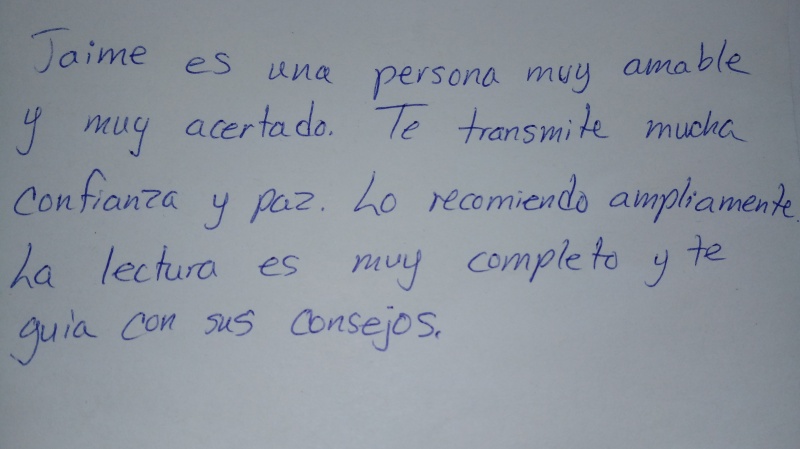 Jaime es una persona muy amable
y muy acertado. Te transmite mucha
confianza y paz. Lo recomiendo ampliamente.
La lectura es muy completo y te
guia con sus consejos.